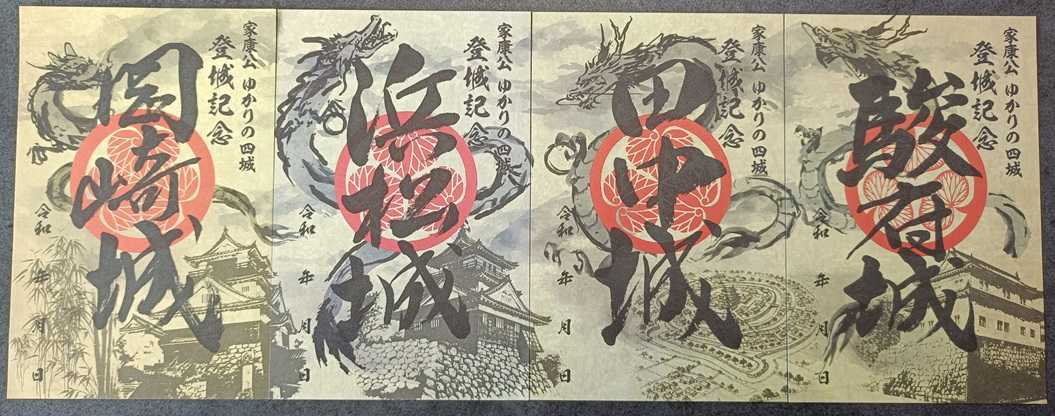 家康公 ゆかりの四城
登城記念
駿府城
令和 年 月 日
家康公 ゆかりの四城
登城記念
田中城
令和 年 月 日
家康公 ゆかりの四城
登城記念
浜松城
令和 年 月 日
家康公 ゆかりの四城
登城記念
岡崎城
令和 年 月 日